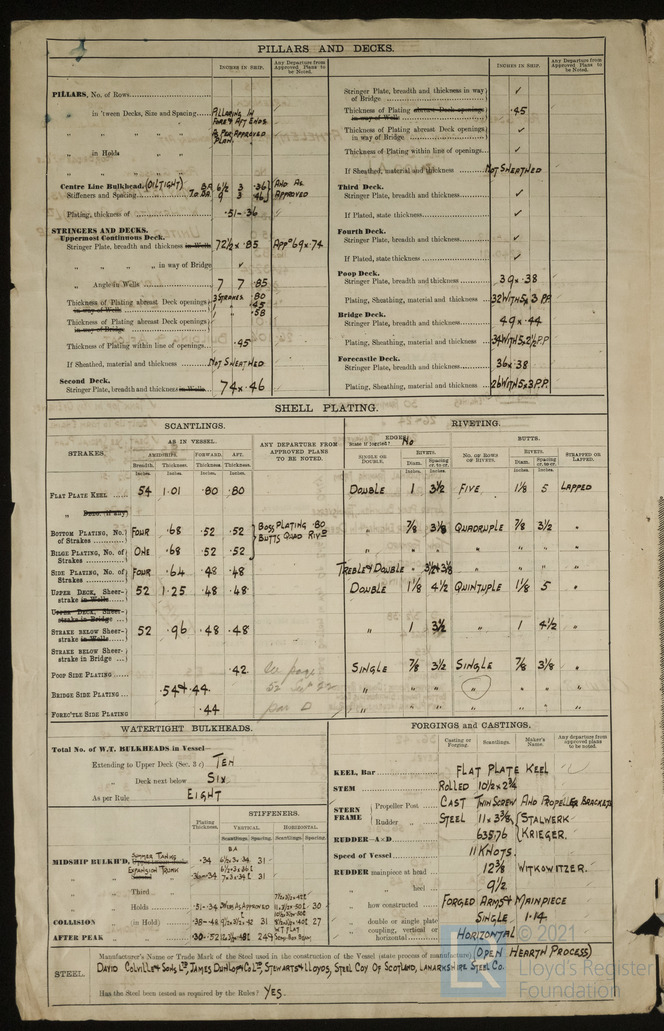 PILLARS AND DECKS.
INCHES IN SHIP.
Any Departure from Approved Plans to be Noted.
PILLARS, No. of Rows
in 'tween Decks, Size and Spacing PILLARING IN FORE & AFT ENDS
" " " " AS PER APPROVED PLAN.
in Holds " "
" " " "
Centre Line Bulkhead. (OILTIGHT) B.A. 6½ 3 .36 } AND AS
Stiffeners and Spacing 9 3 .46 } APPROVED
Plating, thickness of .51-.36
STRINGERS AND DECKS.
Uppermost Continuous Deck.
Stringer Plate, breadth and thickness in Wells 72½ x .85 APPD 69 x .74
" " " " in way of Bridge ✓
" Angle in Wells 7 7 .85
Thickness of Plating abreast Deck openings in way of Wells 3 STRAKES .80
" .45
Thickness of Plating abreast Deck openings in way of Bridge " .58
Thickness of Plating within line of openings .45
If Sheathed, material and thickness NOT SHEATHED
Second Deck.
Stringer Plate, breadth and thickness in Wells 74 x .46
INCHES IN SHIP.
Any Departure from Approved Plans to be Noted.
Stringer Plate, breadth and thickness in way of Bridge ✓
Thickness of Plating abreast Deck openings in way of Wells .45
Thickness of Plating abreast Deck openings in way of Bridge ✓
Thickness of Plating within line of openings ✓
If Sheathed, material and thickness NOT SHEATHED
Third Deck.
Stringer Plate, breadth and thickness ✓
If Plated, state thickness ✓
Fourth Deck.
Stringer Plate, breadth and thickness ✓
If Plated, state thickness ✓
Poop Deck.
Stringer Plate, breadth and thickness 39 x .38
Plating, Sheathing, material and thickness .32 WITH 5 x 3 P.P.
Bridge Deck.
Stringer Plate, breadth and thickness 49 x .44
Plating, Sheathing, material and thickness .34 WITH 5 x 2½ P.P.
Forecastle Deck.
Stringer Plate, breadth and thickness 36 x .38
Plating, Sheathing, material and thickness .26 WITH 5 x 3 P.P.
SHELL PLATING.
SCANTLINGS.
RIVETING.
STRAKES.
AS IN VESSEL.
AMIDSHIPS. FORWARD. AFT.
Breadth. Thickness. Thickness. Thickness.
Inches. Inches. Inches. Inches.
ANY DEPARTURE FROM APPROVED PLANS TO BE NOTED.
EDGES
State if joggled? No
SINGLE OR DOUBLE.
RIVETS.
Diam. Spacing cr. to cr.
Inches. Inches.
BUTTS.
NO. OF ROWS OF RIVETS.
RIVETS.
Diam. Spacing cr. to cr.
Inches. Inches.
STRAPPED OR LAPPED.
FLAT PLATE KEEL 54 1.01 .80 .80 DOUBLE 1 3½ FIVE 1⅛ 5 LAPPED
" DBLG. (if any)
BOTTOM PLATING, No. of Strakes FOUR .68 .52 .52 BOSS PLATING .80 BUTTS QUAD RIVD " ⅞ 3⅛ QUADRUPLE ⅞ 3½ "
BILGE PLATING, No. of Strakes ONE .68 .52 .52 " " " " " " "
SIDE PLATING, No. of Strakes FOUR .64 .48 .48 TREBLE & DOUBLE " 3½ & 3⅛ " " " "
UPPER DECK, Sheerstrake in Wells 52 1.25 .48 .48 DOUBLE 1⅛ 4½ QUINTUPLE 1⅛ 5 "
UPPER DECK, Sheerstrake in Bridge
STRAKE BELOW Sheerstrake in Wells 52 .96 .48 .48 " 1 3½ " 1 4½ "
STRAKE BELOW Sheerstrake in Bridge
POOP SIDE PLATING .42 See page SINGLE ⅞ 3½ SINGLE ⅞ 3⅛ "
BRIDGE SIDE PLATING .54 & .44 " " " " " " "
FOREC'TLE SIDE PLATING .44 " " " " " " "
WATERTIGHT BULKHEADS.
Total No. of W.T. BULKHEADS in Vessel—
Extending to Upper Deck (Sec. 3 c) TEN
" Deck next below SIX
As per Rule EIGHT
Plating Thickness.
STIFFENERS.
VERTICAL. HORIZONTAL.
Scantlings. Spacing. Scantlings. Spacing.
MIDSHIP BULKH'D, SUMMER TANKS .34 B.A. 6½ x 3 x .34 31
" " EXPANSION TRUNK .36 & .34 6½ x 3 x .36 & 7 x 3 x .34 31
" " Third
" " Holds .51-.34 AS APPROVED 30
COLLISION " (in Hold) .38-.48 31 27
AFTER PEAK " " .30-.52 24
FORGINGS and CASTINGS.
Casting or Forging. Scantlings. Maker's Name. Any departure from approved plans to be noted.
KEEL, Bar FLAT PLATE KEEL
STEM ROLLED 10½ x 2¾
STERN FRAME { Propeller Post CAST TWIN SCREW AND PROPELLER BRACKETS
Rudder " STEEL 11 x 3⅜ { STALWERK
RUDDER—A×D 635.76 { KRIEGER.
Speed of Vessel 11 KNOTS.
RUDDER mainpiece at head 12⅜ WITKOWITZER.
" " heel 9½
" how constructed FORGED ARMS & MAINPIECE
" double or single plate SINGLE 1.14
" coupling, vertical or horizontal HORIZONTAL
STEEL.
Manufacturer's Name or Trade Mark of the Steel used in the construction of the Vessel (state process of manufacture) (OPEN HEARTH PROCESS)
DAVID COLVILLE & SONS LTD, JAMES DUNLOP & CO LTD, STEWARTS & LLOYDS, STEEL COY OF SCOTLAND, LANARKSHIRE STEEL CO.
Has the Steel been tested as required by the Rules? YES.
© 2021
Lloyd's Register
Foundation